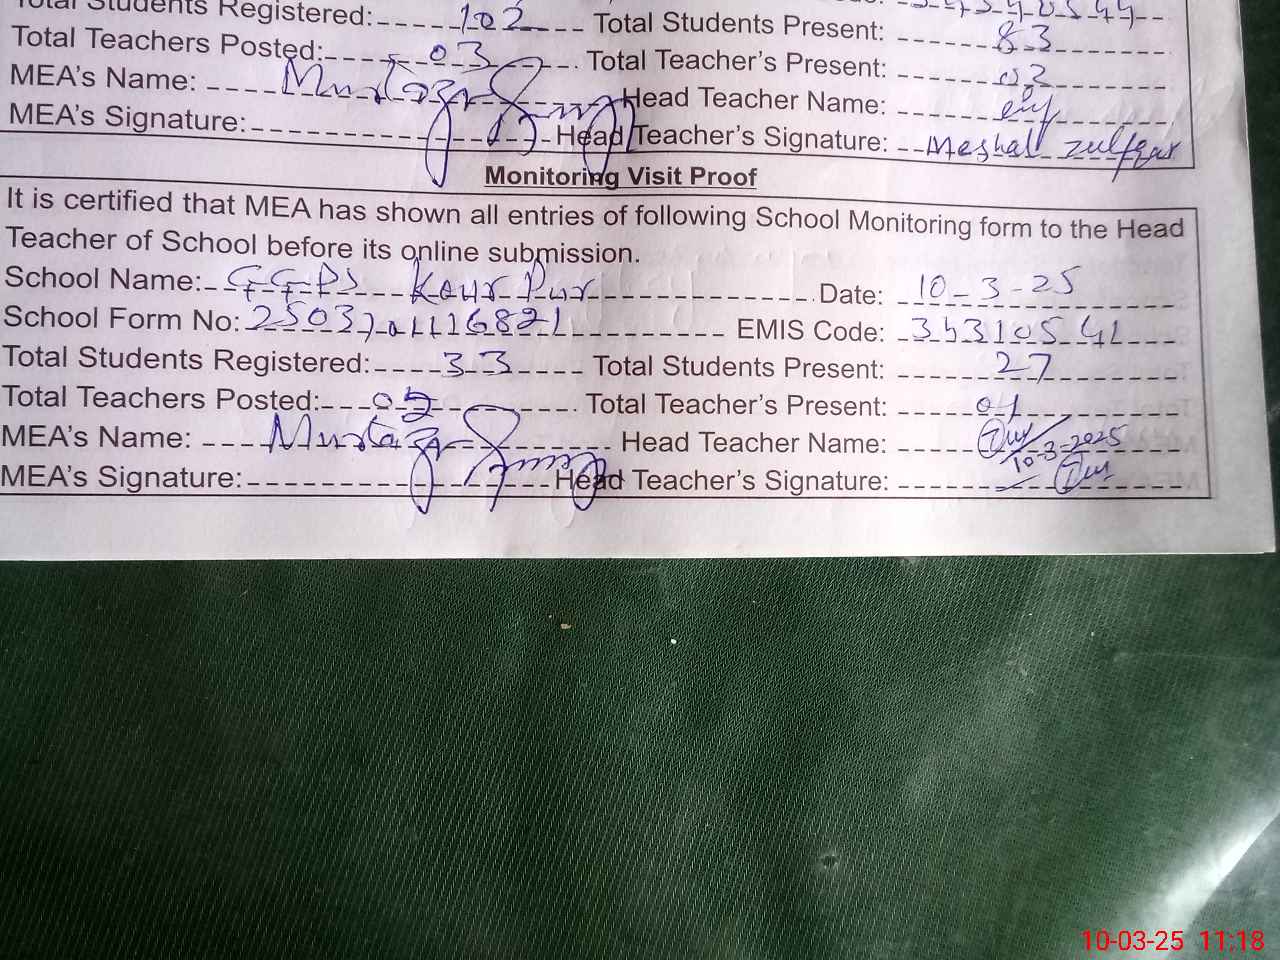 Total Students Registered: 102 Total Students Present: 83
Total Teachers Posted: 03 Total Teacher's Present: 02
MEA's Name: Head Teacher Name:
MEA's Signature: Head Teacher's Signature: Meshal Zulfqar
Monitoring Visit Proof
It is certified that MEA has shown all entries of following School Monitoring form to the Head
Teacher of School before its online submission.
School Name: GGPS Kour Pur Date: 10-3-25
School Form No: EMIS Code: 35310541
Total Students Registered: 33 Total Students Present: 27
Total Teachers Posted: 02 Total Teacher's Present: 01
MEA's Name: Head Teacher Name: 10-3-2025
MEA's Signature: Head Teacher's Signature:
10-03-25 11:18